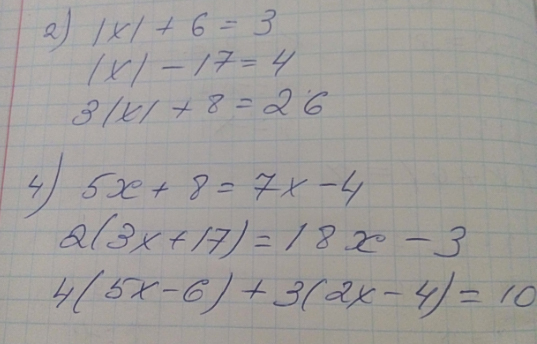 2) |x| + 6 = 3
|x| - 17 = 4
3|x| + 8 = 26
4) 5x + 8 = 7x - 4
2(3x + 17) = 18x - 3
4(5x - 6) + 3(2x - 4) = 10